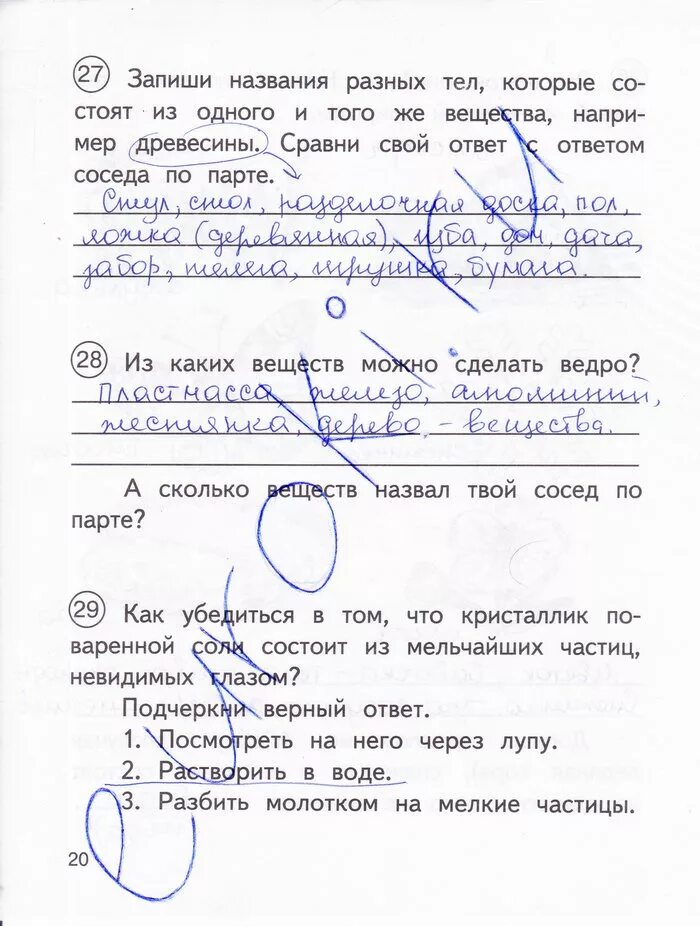 27 Запиши названия разных тел, которые со-
стоят из одного и того же вещества, напри-
мер древесины. Сравни свой ответ с ответом
соседа по парте.
Стул, стол, разделочная доска, пол,
ложка (деревянная), изба, дом, дача,
забор, телега, игрушка, бумага.
28 Из каких веществ можно сделать ведро?
Пластмасса, железо, алюминий,
жестянка, дерево - вещества.
А сколько веществ назвал твой сосед по
парте?
29 Как убедиться в том, что кристаллик по-
варенной соли состоит из мельчайших частиц,
невидимых глазом?
Подчеркни верный ответ.
1. Посмотреть на него через лупу.
2. Растворить в воде.
3. Разбить молотком на мелкие частицы.
20